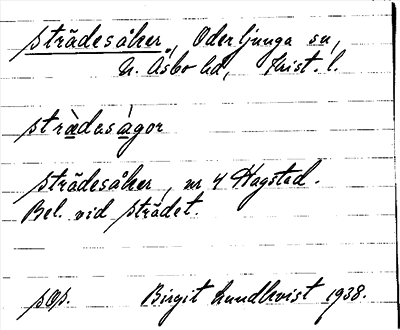 Strädesåker, Oderljunga sn,
N. Åsbo hd, Krist. l.
strä̀dasàgor
Strädesåker, nr 4 Hagstad.
Bel. vid strädet.
Birgit Lundkvist 1938.